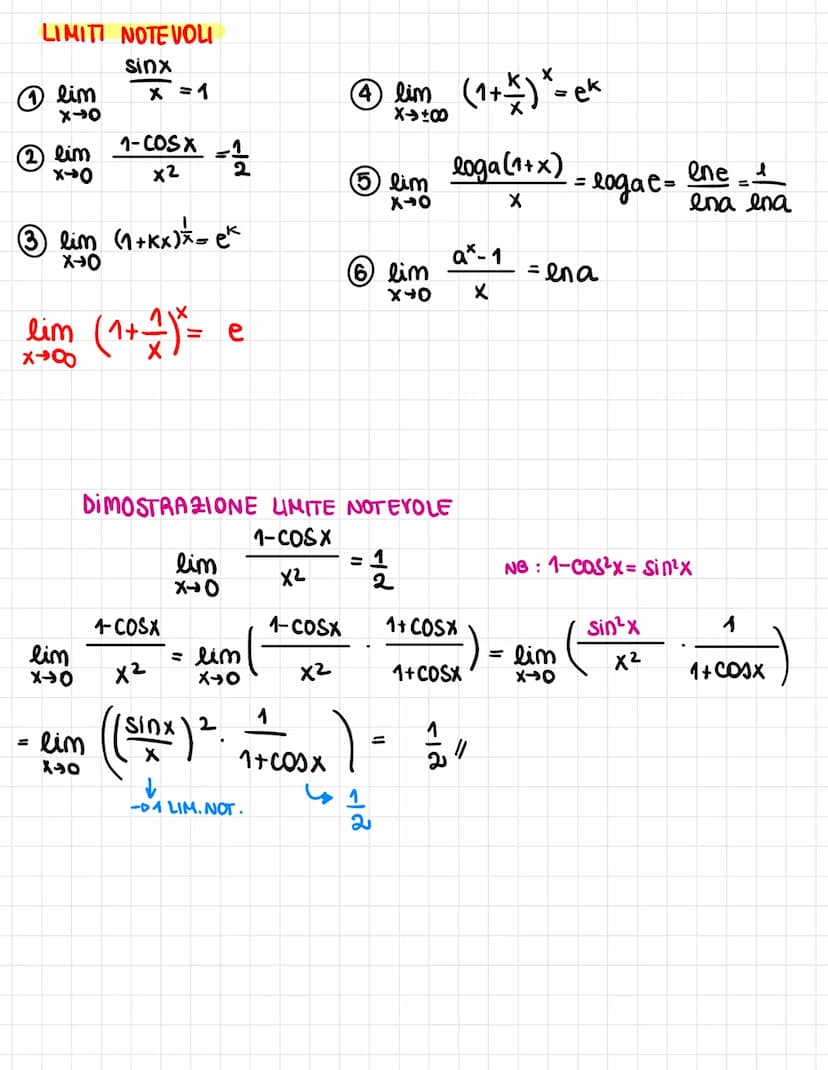 LIMITI NOTEVOLI
① lim x→0 sinx/x = 1
② lim x→0 1-cosx/x² = 1/2
③ lim x→0 (1+Kx)^1/x = e^K
lim x→∞ (1+1/x)^x = e
④ lim x→±∞ (1+K/x)^x = e^K
⑤ lim x→0 loga(1+x)/x = logae = lne/lna = 1/lna
⑥ lim x→0 a^x-1/x = lna
DIMOSTRAZIONE LIMITE NOTEVOLE
lim x→0 1-cosx/x² = 1/2
NB : 1-cos²x = sin²x
lim x→0 1-cosx/x² = lim x→0 (1-cosx/x² · 1+cosx/1+cosx) = lim x→0 (sin²x/x² · 1/1+cosx)
= lim x→0 ((sinx/x)² · 1/1+cosx) = 1/2 //
↓ ↳ 1/2
→1 LIM. NOT.